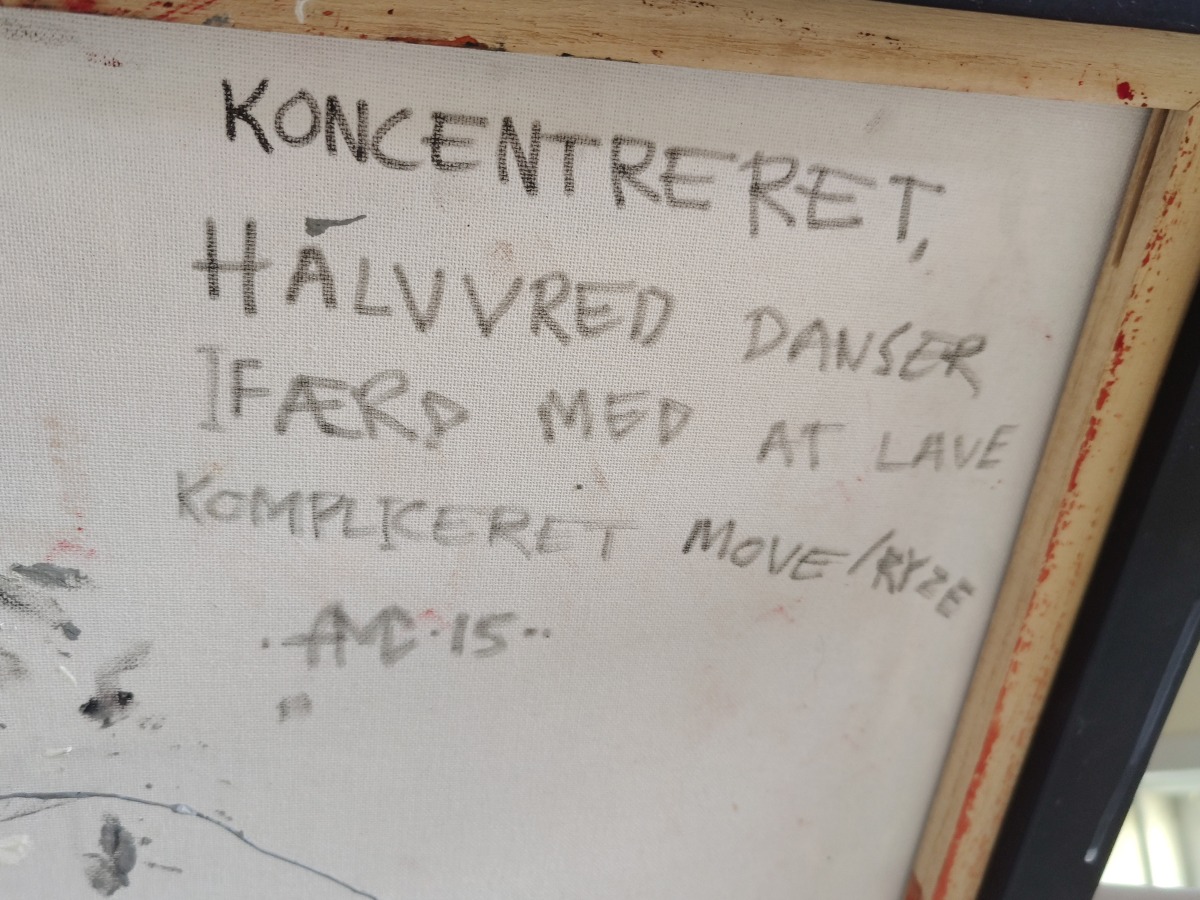 KONCENTRERET,
HALVVRED DANSER
IFÆRD MED AT LAVE
KOMPLICERET MOVE/RYZE
.AMC.15..